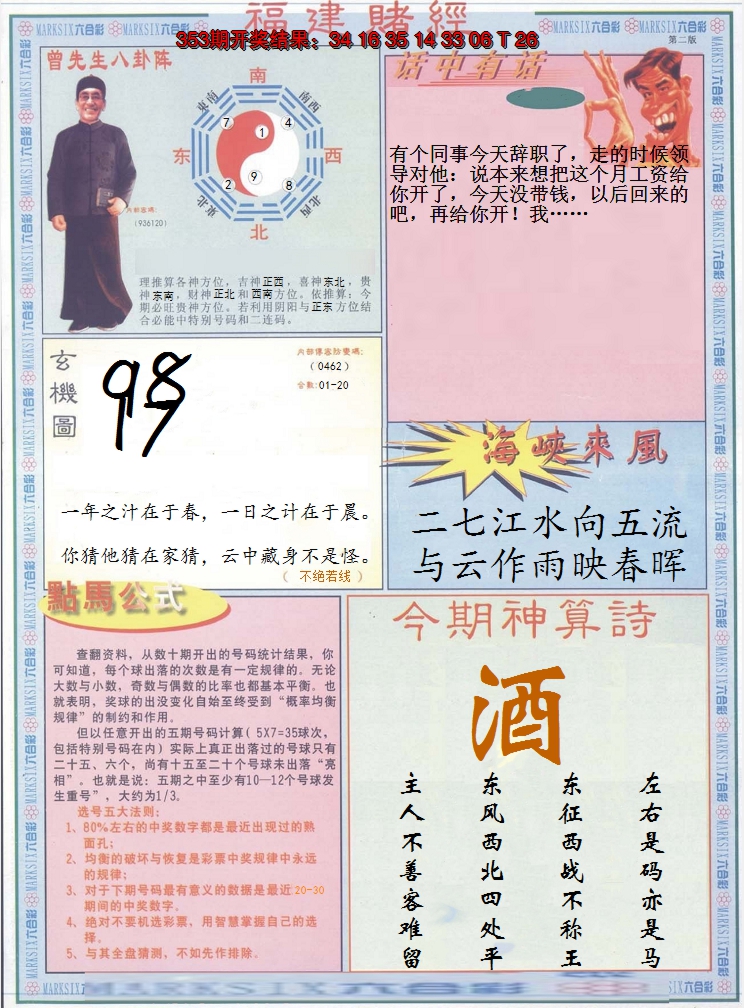 福建賭經
353期开奖结果：34 16 35 14 33 06 T 26
MARKSIX六合彩
第二版
曾先生八卦阵
南
東南
南西
7
1
4
东
西
2
9
8
東北
北西
北
内部密碼:
（936120）
理推算各神方位，吉神正西，喜神东北，贵
神东南，财神正北和西南方位。依推算：今
期必旺贵神方位。若利用阴阳与正东方位结
合必能中特别号码和二连码。
话中有话
有个同事今天辞职了，走的时候领
导对他：说本来想把这个月工资给
你开了，今天没带钱，以后回来的
吧，再给你开！我……
玄機圖
（0462）
合数:01-20
一年之汁在于春，一日之计在于晨。
你猜他猜在家猜，云中藏身不是怪。
（ 不绝若线 ）
海峽來風
二七江水向五流
与云作雨映春晖
點馬公式
查翻资料，从数十期开出的号码统计结果，你
可知道，每个球出落的次数是有一定规律的。无论
大数与小数，奇数与偶数的比率也都基本平衡。也
就表明，奖球的出没变化自始至终受到“概率均衡
规律”的制约和作用。
但以任意开出的五期号码计算（ 5X7=35球次，
包括特别号码在内）实际上真正出落过的号球只有
二十五、六个，尚有十五至二十个号球未出落“亮
相”。也就是说：五期之中至少有10—12个号球发
生重号”，大约为1/3。
选号五大法则:
1、80%左右的中奖数字都是最近出现过的熟
面孔;
2、均衡的破坏与恢复是彩票中奖规律中永远
的规律;
3、对于下期号码最有意义的数据是最近20-30
期间的中奖数字。
4、绝对不要机选彩票，用智慧掌握自己的选
择。
5、与其全盘猜测，不如先作排除。
今期神算詩
酒
左右是码亦是马
东征西战不称王
东风西北四处平
主人不善客难留